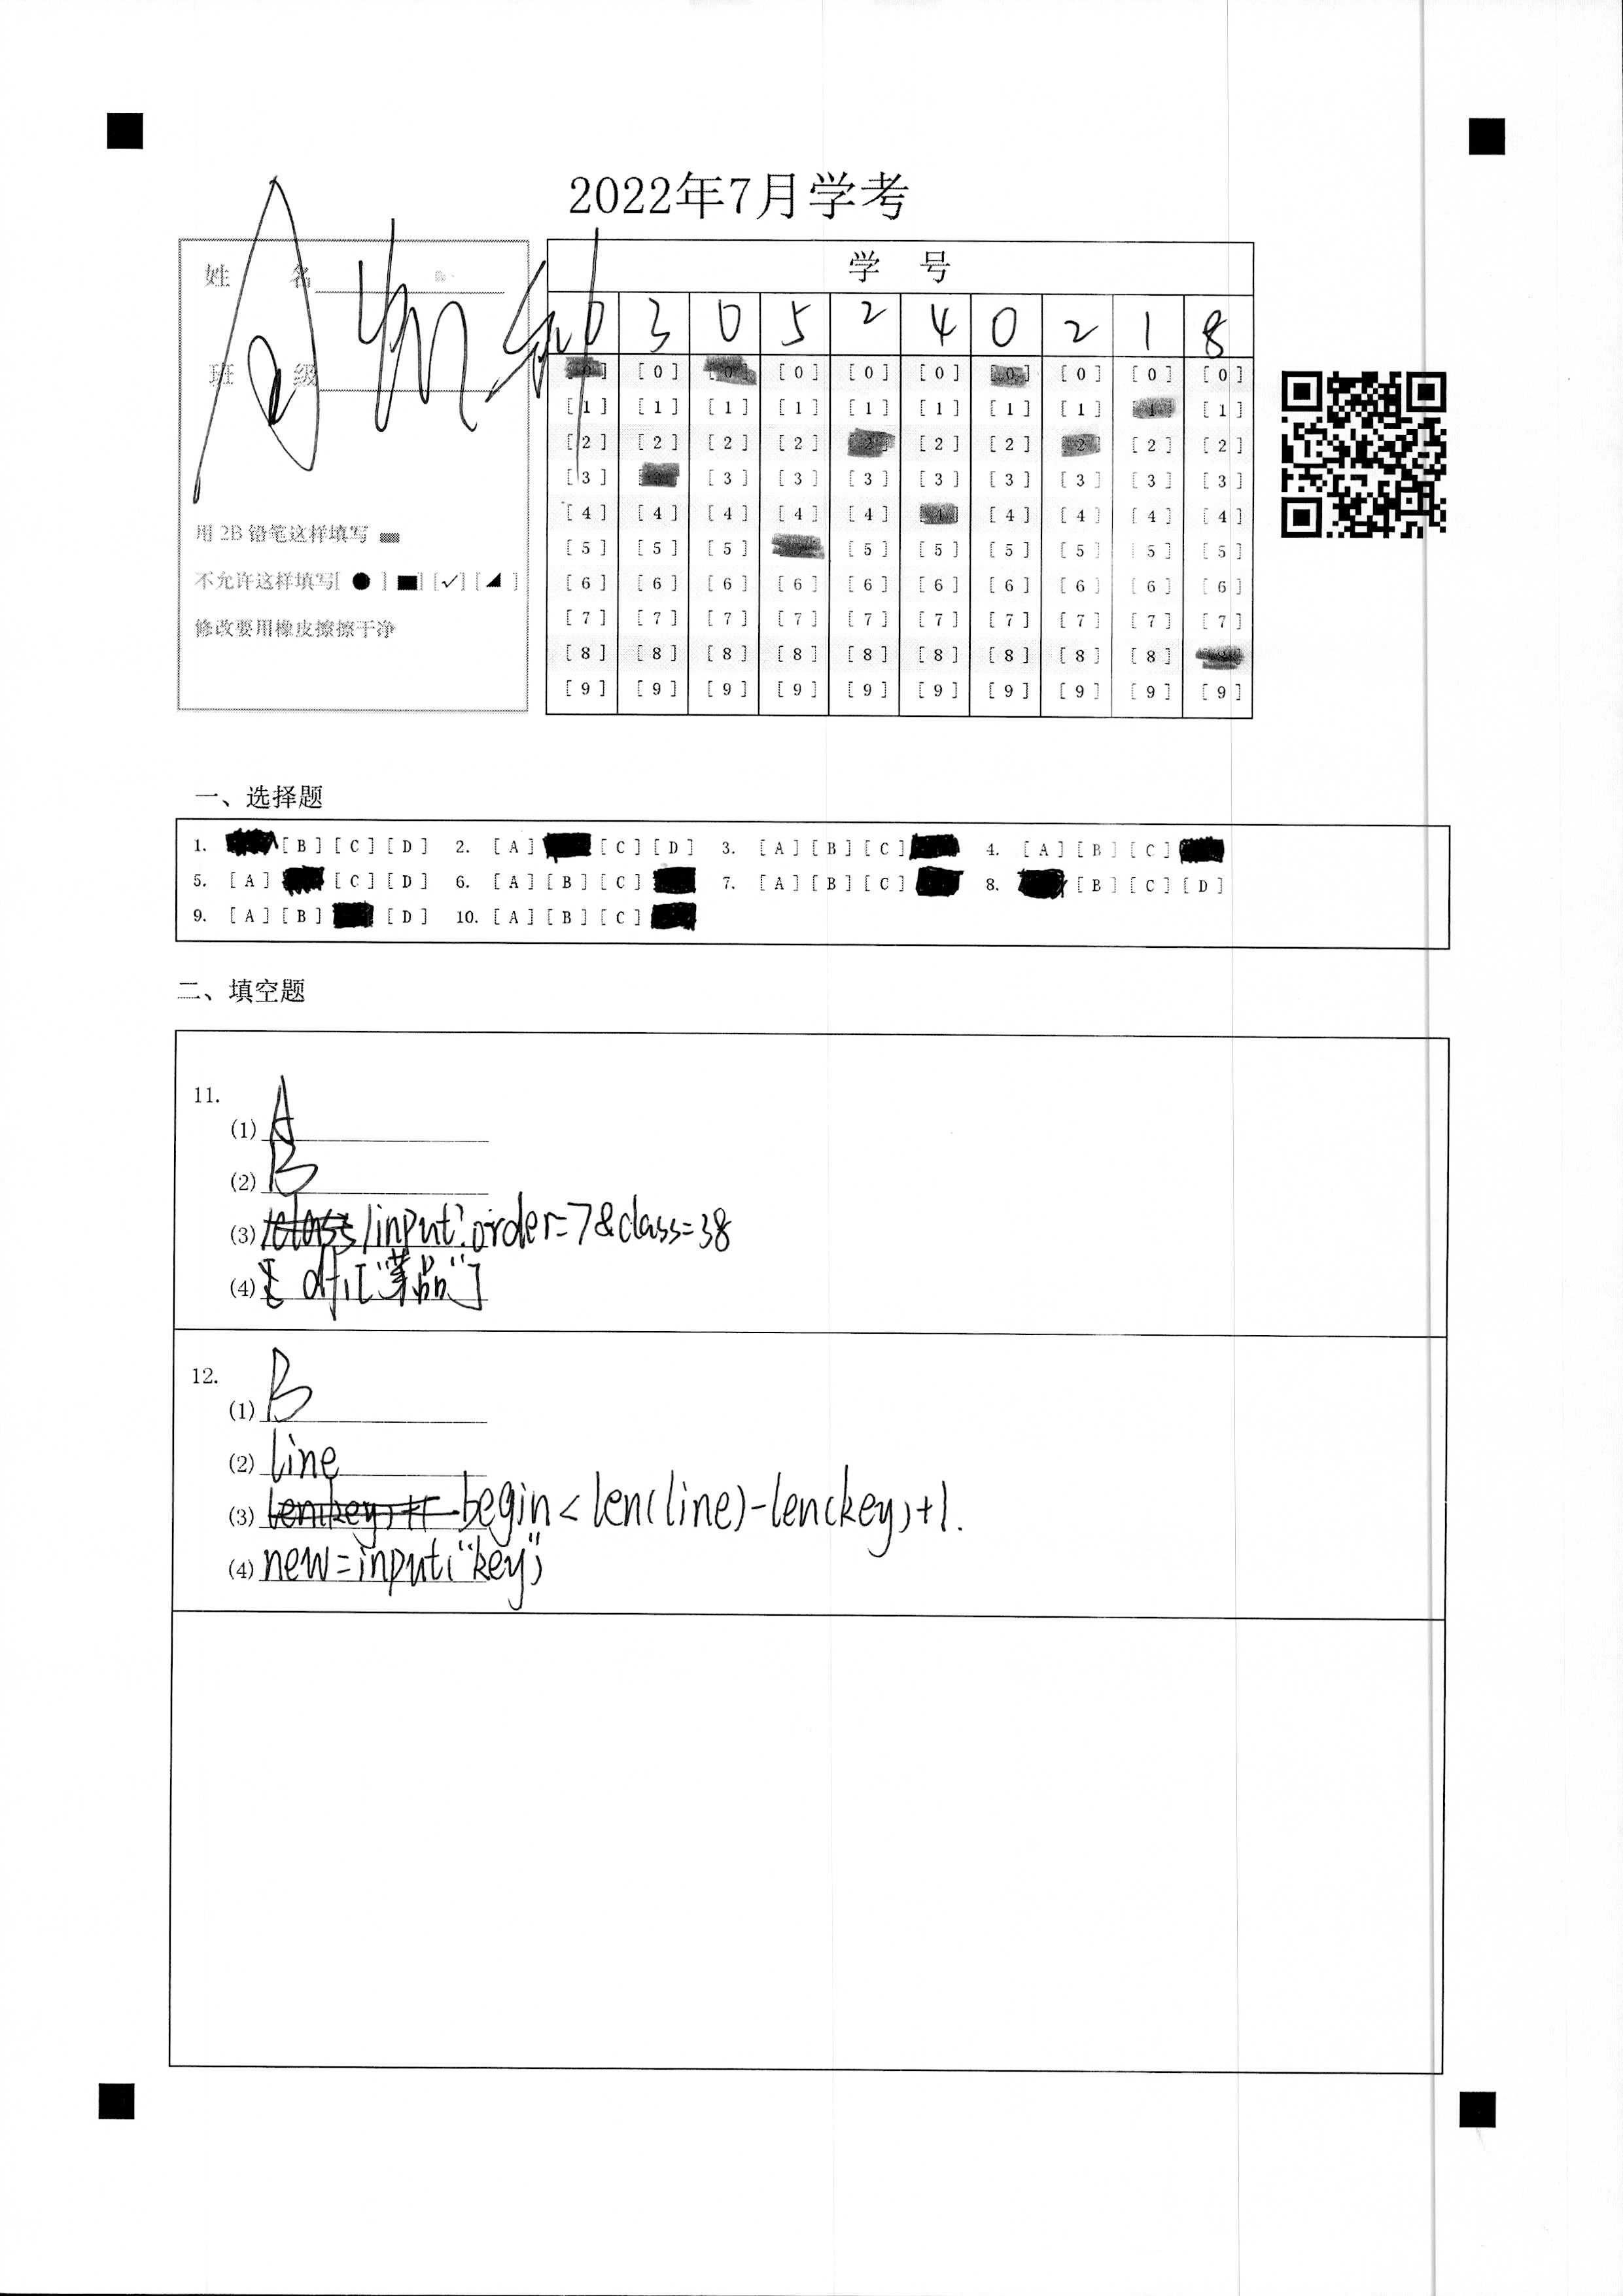 2022年7月学考
姓 名
班 级
用 2B 铅笔这样填写
不允许这样填写[ ● ] [■] [✓] [◢ ]
修改要用橡皮擦擦干净
学 号
0 3 0 5 2 4 0 2 1 8
[0] [0] [0] [0] [0] [0] [0] [0] [0] [0]
[1] [1] [1] [1] [1] [1] [1] [1] [1] [1]
[2] [2] [2] [2] [2] [2] [2] [2] [2] [2]
[3] [3] [3] [3] [3] [3] [3] [3] [3] [3]
[4] [4] [4] [4] [4] [4] [4] [4] [4] [4]
[5] [5] [5] [5] [5] [5] [5] [5] [5] [5]
[6] [6] [6] [6] [6] [6] [6] [6] [6] [6]
[7] [7] [7] [7] [7] [7] [7] [7] [7] [7]
[8] [8] [8] [8] [8] [8] [8] [8] [8] [8]
[9] [9] [9] [9] [9] [9] [9] [9] [9] [9]
一、选择题
1. [B] [C] [D] 2. [A] [C] [D] 3. [A] [B] [C] 4. [A] [B] [C]
5. [A] [C] [D] 6. [A] [B] [C] 7. [A] [B] [C] 8. [B] [C] [D]
9. [A] [B] [D] 10. [A] [B] [C]
二、填空题
11.
(1) A
(2) B
(3) /input?order=7&class=38
(4) df1["菜品"]
12.
(1) B
(2) line
(3) begin<len(line)-len(key)+1.
(4) new=input("key")